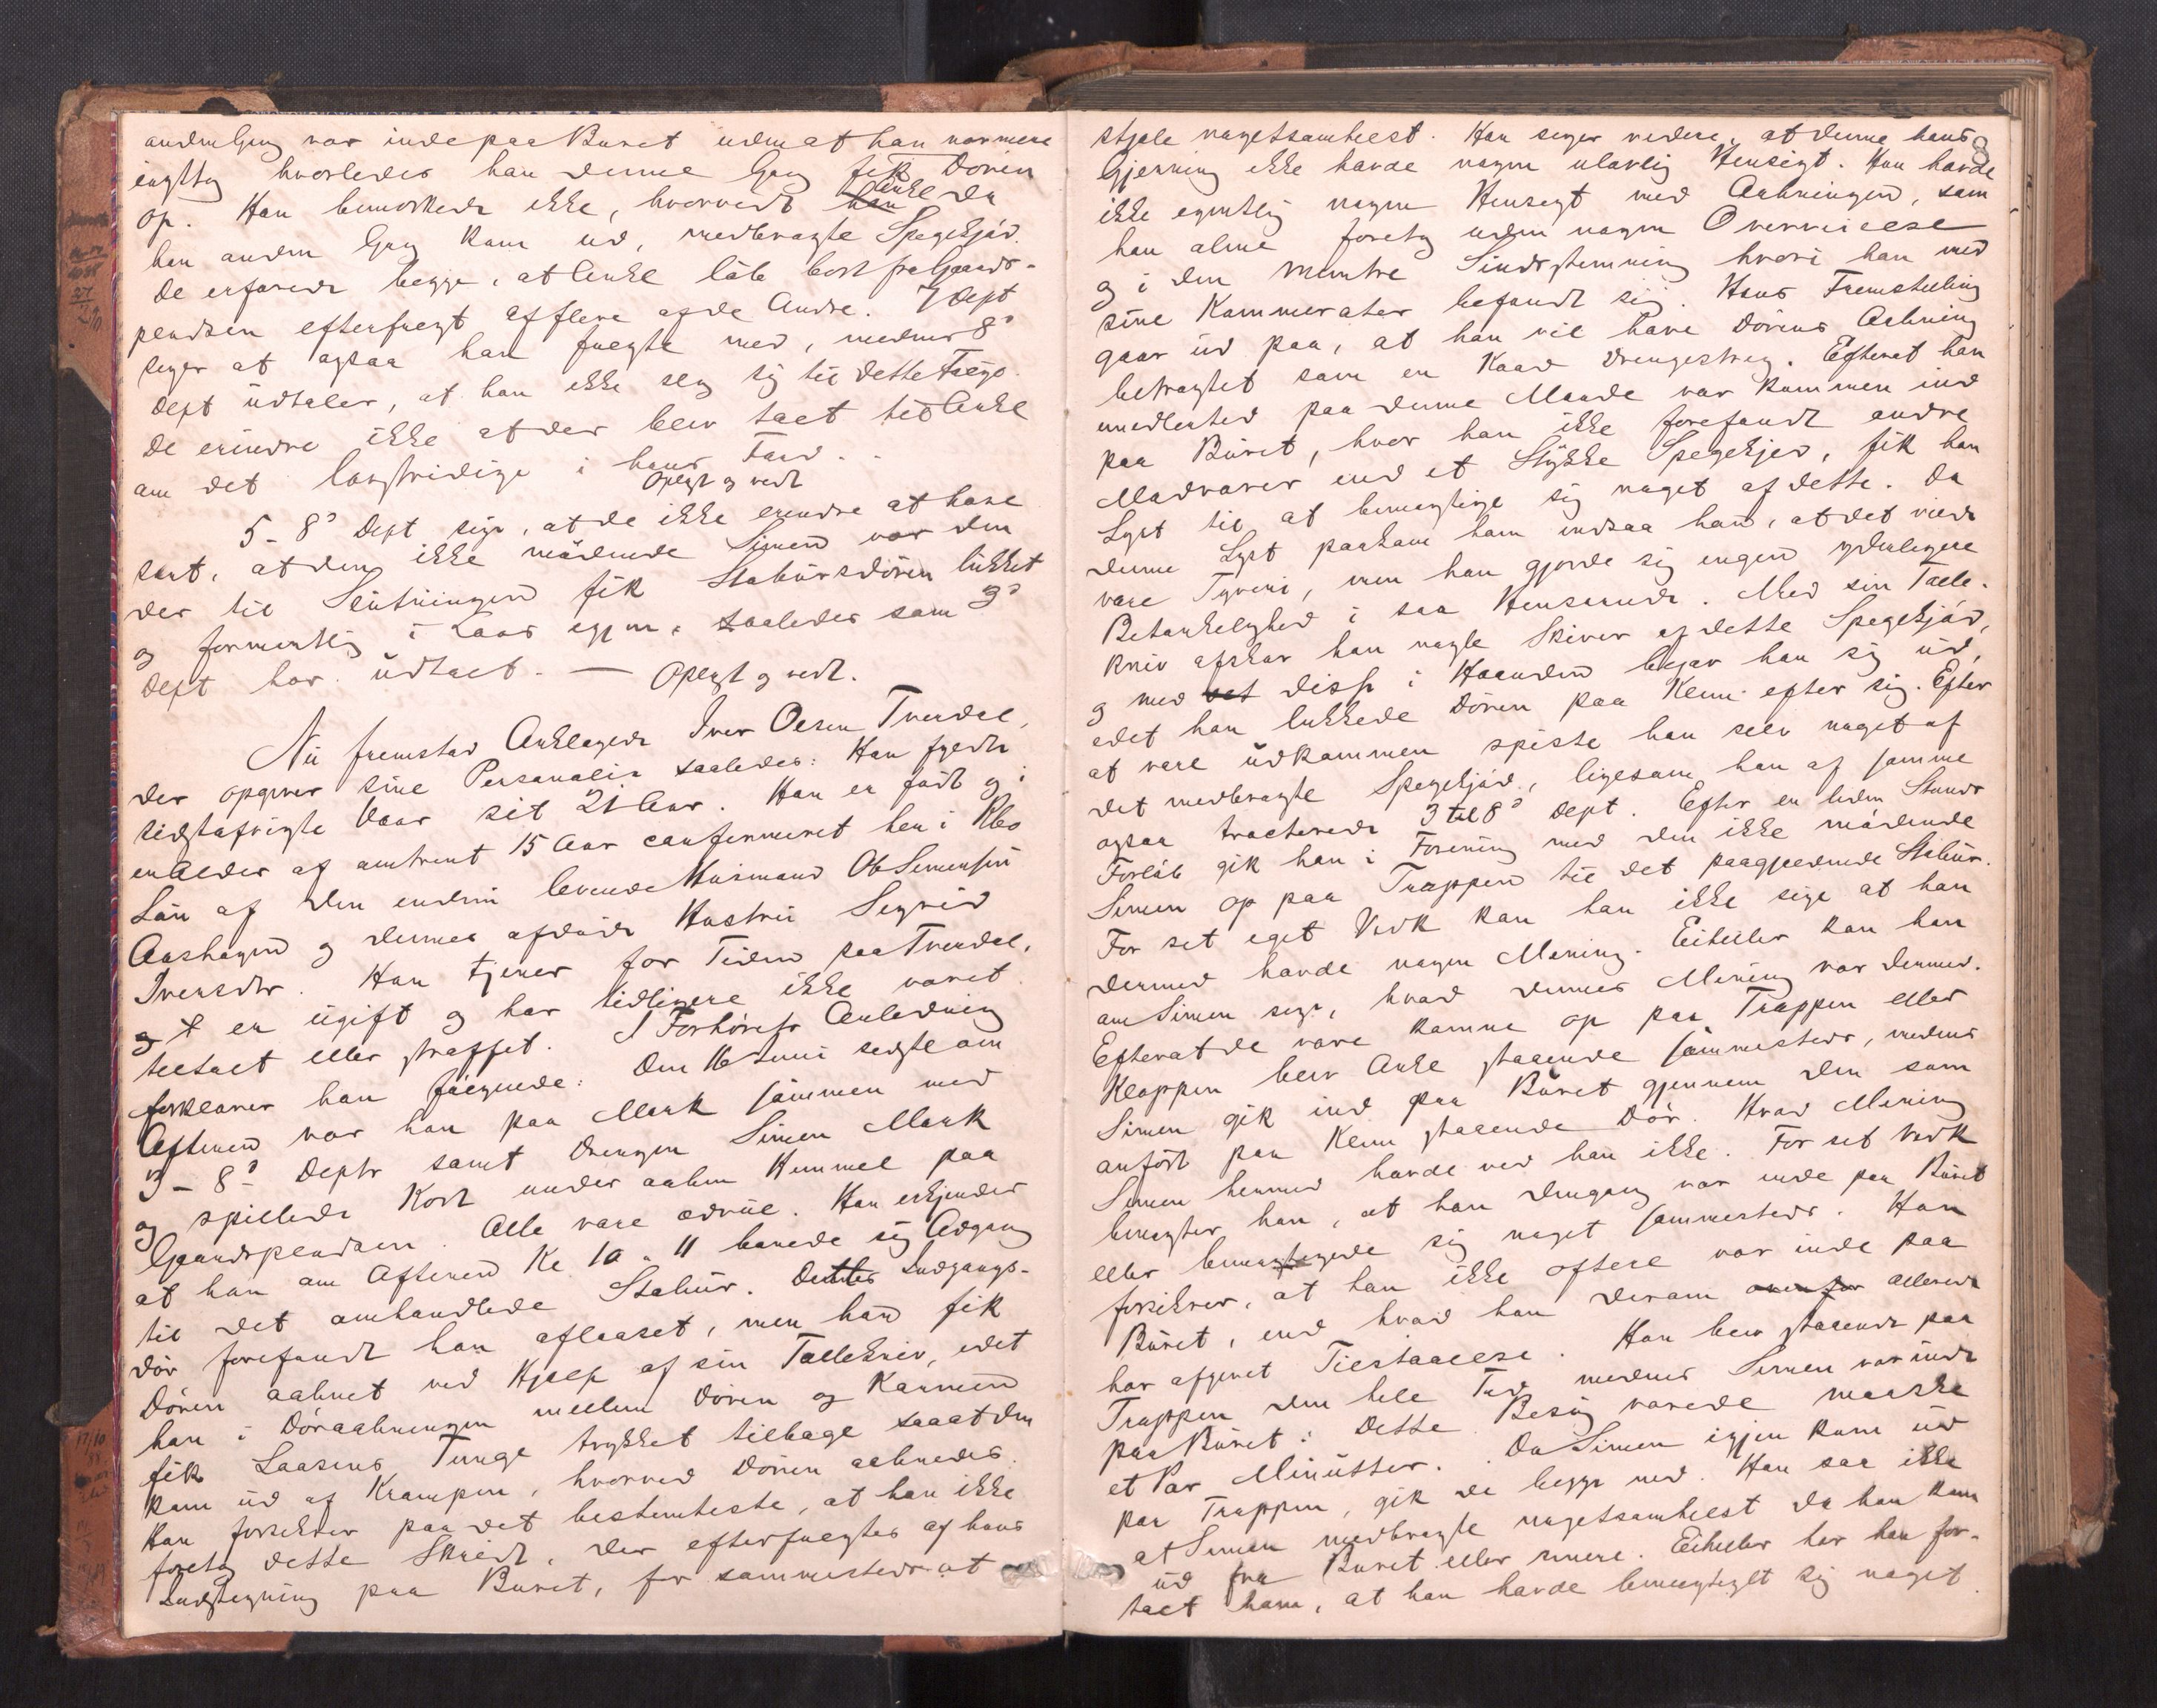 anden Gang var inde paa Buret uden at han nærmere
iagttog hvorledes han denne Gang fik Døren
op. Han bemærkede ikke, hvorvidt Ankl da
han anden Gang kom ud, medbragte Spegekjød.
De erfarede begge, at Ankl løb bort fra Gaards-
pladsen efterfulgt af flere af de Andre. 7 Dept
siger at ogsaa han fulgte med, medens 8d
Dept udtaler, at han ikke slog sig til dette Følge.
De erindre ikke at der blev talt til Ankl
om det lovstridige i hans Færd. -
Oplæst og vedt
5 - 8d Dept sige, at de ikke erindre at have
seet, at den ikke mødende Simen var den
der til Slutningen fik Stabursdøren lukket
og formentlig i Laas igjen, saaledes som 3d
Dept har udtalt. — Oplæst og vedt.
Nu fremstod Anklagede Iver Olsen Trendal,
der opgiver sine Personalia saaledes: Han fyldte
sidstafvigte Vaar sit 21 Aar. Han er født og i
en Alder af omtrent 15 Aar confirmeret her i Rbo
Søn af den endnu levende Husmand Ole Simensen
Aashagen og dennes afdøde Hustru Sigrid
Iversdtr. Han tjener for Tiden paa Trendal,
og er ugift og har tidligere ikke været
tiltalt eller straffet. I Forhørets Anledning
forklarer han følgende: Den 16 Juni sidstl om
Aftenen var han paa Mark sammen med
3 - 8d Depts samt Drengen Simen Mark
og spillede Kort under aaben Himmel paa
Gaardspladsen. Alle vare ædrue. Han erkjender
at han om Aftenen Kl 10 a 11 banede sig Adgang
til det omhandlede Stabur. Dettes Indgangs-
dør forefandt han aflaaset, men han fik
Døren aabnet ved Hjælp af sin Tollekniv, idet
han i Døraabningen mellem Døren og Karmen
fik Laasens Tunge trykket tilbage saaat den
kom ud af Krampen, hvorved Døren aabnedes.
Han forsikrer paa det bestemteste, at han ikke
foretog dette Skridt, der efterfulgtes af hans
Indstigning paa Buret, for sammesteds at
stjæle nogetsomhelst. Han siger videre, at denne hans
Gjerning ikke havde nogen ulovlig Hensigt. Han havde
ikke egentlig nogen Hensigt med Aabningen, som
han alene foretog uden nogen Overveielse
og i den muntre Sindsstemning hvori han med
sine Kammerater befandt sig. Hans Fremstilling
gaar ud paa, at han vil have Dørens Aabning
betragtet som en kaad Drengestreg. Efterat han
imidlertid paa denne Maade var kommen ind
paa Buret, hvor han ikke forefandt andre
Madvarer end et Stykke Spegekjød, fik han
Lyst til at bemægtige sig noget af dette. Da
denne Lyst paakom ham indsaa han, at det vilde
være Tyveri, men han gjorde sig ingen yderligere
Betænkelighed i saa Henseende. Med sin Tolle-
kniv afskar han nogle Skiver af dette Spegekjød,
og med disse i Haanden begav han sig ud,
idet han lukkede Døren paa Klem efter sig. Efter
at være udkommen spiste han selv noget af
det medbragte Spegekjød, ligesom han af samme
ogsaa tracterede 3 til 8d Dept. Efter en liden Stunds
Forløb gik han i Forening med den ikke mødende
Simen op paa Trappen til det paagjældende Stabur.
For sit eget Vedk kan han ikke sige at han
dermed havde nogen Mening. Eiheller kan han
om Simen sige, hvad dennes Mening var dermed.
Efterat de vare komne op paa Trappen eller
Kloppen blev Ankl staaende sammesteds, medens
Simen gik ind paa Buret gjennem den som
anført paa Klem staaende Dør. Hvad Mening
Simen hermed havde ved han ikke. For sit Vedk
benægter han, at han dengang var inde paa Buret
eller bemægtigede sig noget sammesteds. Han
forsikrer, at han ikke oftere var inde paa
Buret, end hvad han derom allerede
har afgivet Tilstaaelse. Han blev staaende paa
Trappen den hele Tid medens Simen var inde
paa Buret. Dette Besøg varede maaske
et Par Minutter. Da Simen igjen kom ud
paa Trappen, gik de begge ned. Han saa ikke
at Simen medbragte nogetsomhelst da han kom
ud fra Buret eller senere. Eiheller har han for-
talt ham, at han havde bemægtiget sig noget.